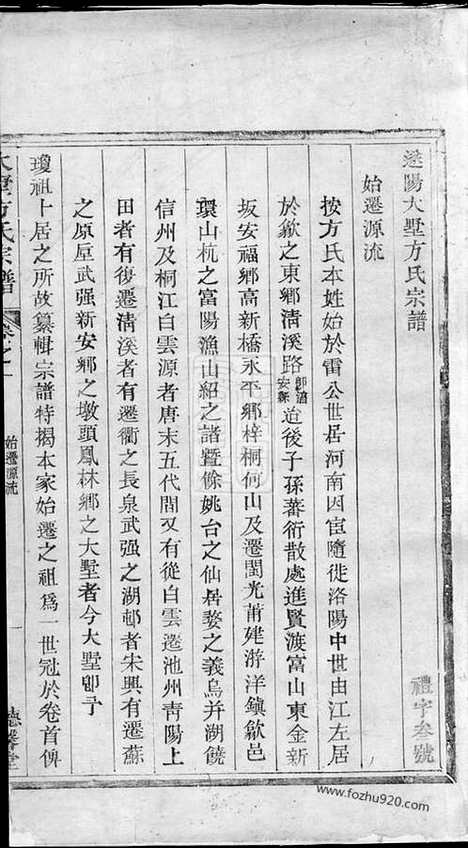 遂陽大墅方氏宗譜
始遷源流
按方氏本姓始於雷公世居河南因宦隨徙洛陽中世由江左居
於歙之東鄉淸溪路即淳安新道後子孫蕃衍散處進賢渡富山東金新
坂安福鄉高新橋永平鄉梓桐何山及遷閩光莆建游洋鎭歙邑
環山杭之富陽漁山紹之諸暨餘姚台之仙居婺之義烏并湖饒
信州及桐江白雲源者唐末五代間又有從白雲遷池州靑陽上
田者有復遷淸溪者有遷衢之長泉武强之湖邨者朱興有遷蘇
之原屋武强新安鄉之墩頭鳳林鄉之大墅者今大墅卽予
瓊祖卜居之所故纂輯宗譜特揭本家始遷之祖爲一世冠於卷首俾
大墅方氏宗譜
卷之一
始遷源流
德馨堂
禮字叁號
www.fozhu920.com